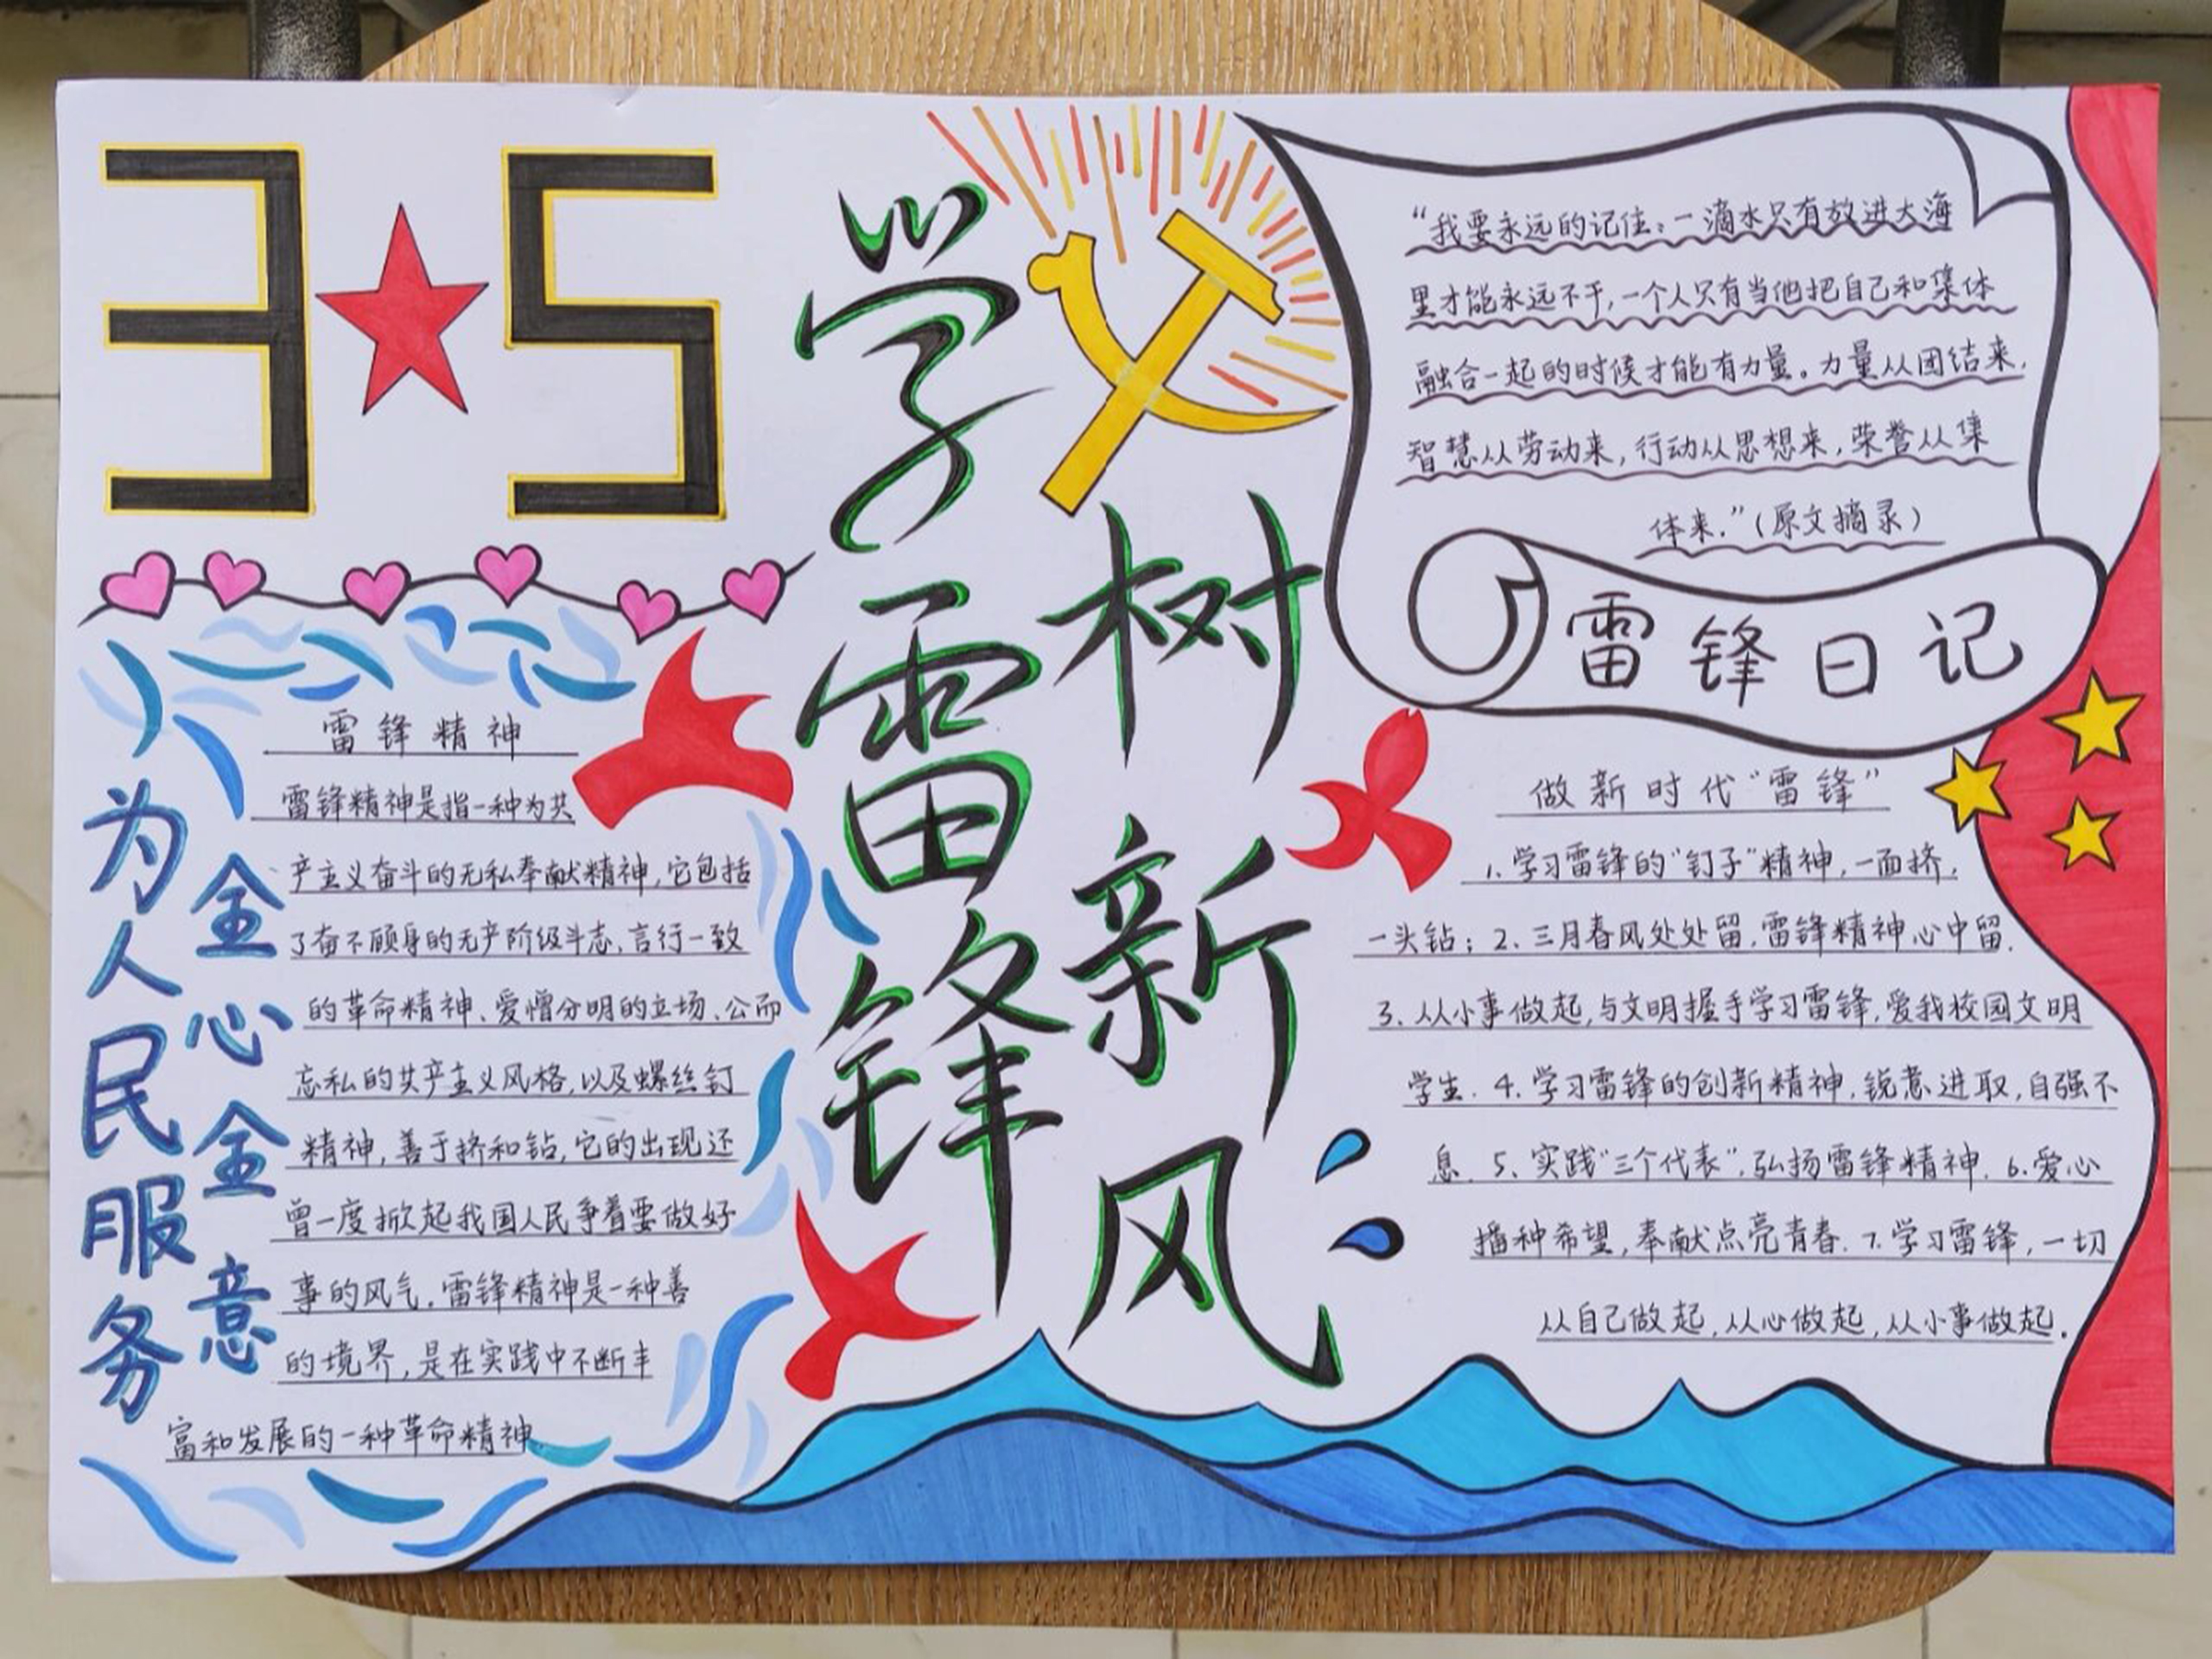 3★5
学雷锋
树新风
全心全意
为人民服务
雷锋精神
雷锋精神是指一种为共
产主义奋斗的无私奉献精神,它包括
了奋不顾身的无产阶级斗志,言行一致
的革命精神、爱憎分明的立场、公而
忘私的共产主义风格,以及螺丝钉
精神,善于挤和钻,它的出现还
曾一度掀起我国人民争着要做好
事的风气。雷锋精神是一种善
的境界,是在实践中不断丰
富和发展的一种革命精神
“我要永远的记住:一滴水只有放进大海
里才能永远不干,一个人只有当他把自己和集体
融合一起的时候才能有力量。力量从团结来,
智慧从劳动来,行动从思想来,荣誉从集
体来.”(原文摘录)
雷锋日记
做新时代“雷锋”
1.学习雷锋的“钉子”精神,一面挤,
一头钻;2.三月春风处处留,雷锋精神心中留.
3.从小事做起,与文明握手学习雷锋,爱我校园文明
学生.4.学习雷锋的创新精神,锐意进取,自强不
息.5.实践“三个代表”,弘扬雷锋精神.6.爱心
播种希望,奉献点亮青春.7.学习雷锋,一切
从自己做起,从心做起,从小事做起.